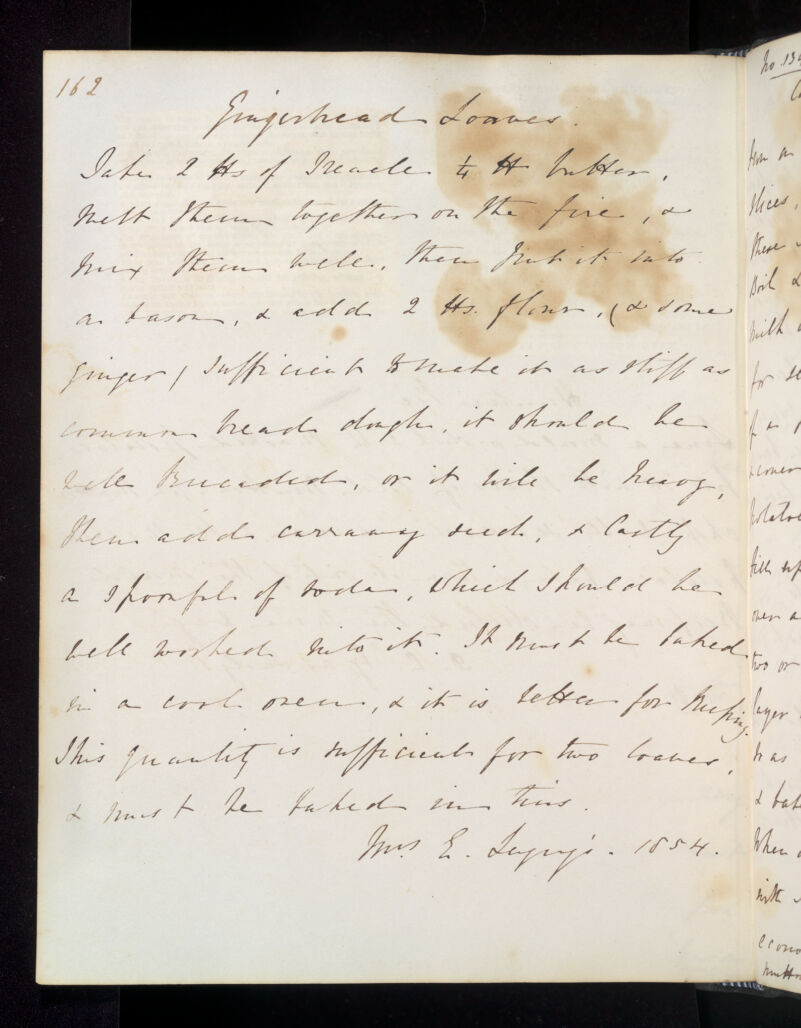 162
Gingerbread Loaves.
Take 2 lbs of Treacle 1/4 lb butter,
melt them together on the fire, &
mix them well, then put it into
a bason, & add 2 lbs. flour, (& some
ginger) sufficient to make it as stiff as
common bread dough, it should be
well kneaded, or it will be heavy,
then add carraway seed, & lastly
a spoonful of soda, which should be
well worked into it. It must be baked
in a cool oven, & it is better for keeping.
This quantity is sufficient for two loaves,
& must be baked in tins.
Mrs E. 1854.
No. 134
slices,
these
boil &
milk
for
potatoe
fill up
over a
two or
layer
When
with